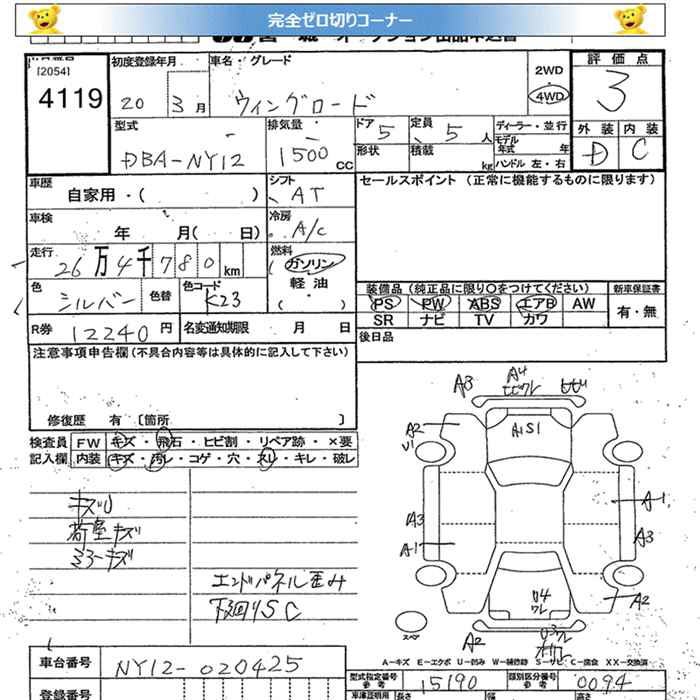 完全ゼロ切りコーナー
[2054]
4119
初度登録年月
20 3月
車名・グレード
ウィングロード
2WD
・
4WD
評価点
3
外装 内装
D C
型式
DBA-NY12
排気量
1500 CC
ドア 5
定員 5 人
形状
積載 kg
ディーラー・並行
モデル年式 年
ハンドル 左・右
車歴
自家用・( )
シフト
AT
セールスポイント (正常に機能するものに限ります)
車検
年 月( 日)
冷房
A/C
走行
26万4千780km
燃料
ガソリン
軽油
( ・ )
色
シルバー
色替
色コード
K23
装備品 (純正品に限り○をつけてください)
新車保証書
PS PW ABS エアB AW
SR ナビ TV カワ
有・無
R券 12240円
名変通知期限 月 日
後日品
注意事項申告欄 (不具合内容等は具体的に記入して下さい)
修復歴 有 〔箇所 〕
検査員
記入欄
FW キズ・飛石・ヒビ割・リペア跡・×要
内装 キズ・汚レ・コゲ・穴・スレ・キレ・破レ
キズU
荷室キズ
ミラーキズ
エンドパネル歪み
下廻りSC
A3
A4
ヒビワレ
A2
U1
A1S1
A3
A1
A1
A3
U4
ワレ
A2
A2
U3ワレ
スペア
A-キズ E-エクボ U-凹み W-補修跡 S-サビ C-腐食 XX-交換済
車台番号
NY12-020425
型式指定番号
参考
15190
類別区分番号
参考
0094
登録番号
車庫証明用
長さ
幅
高さ